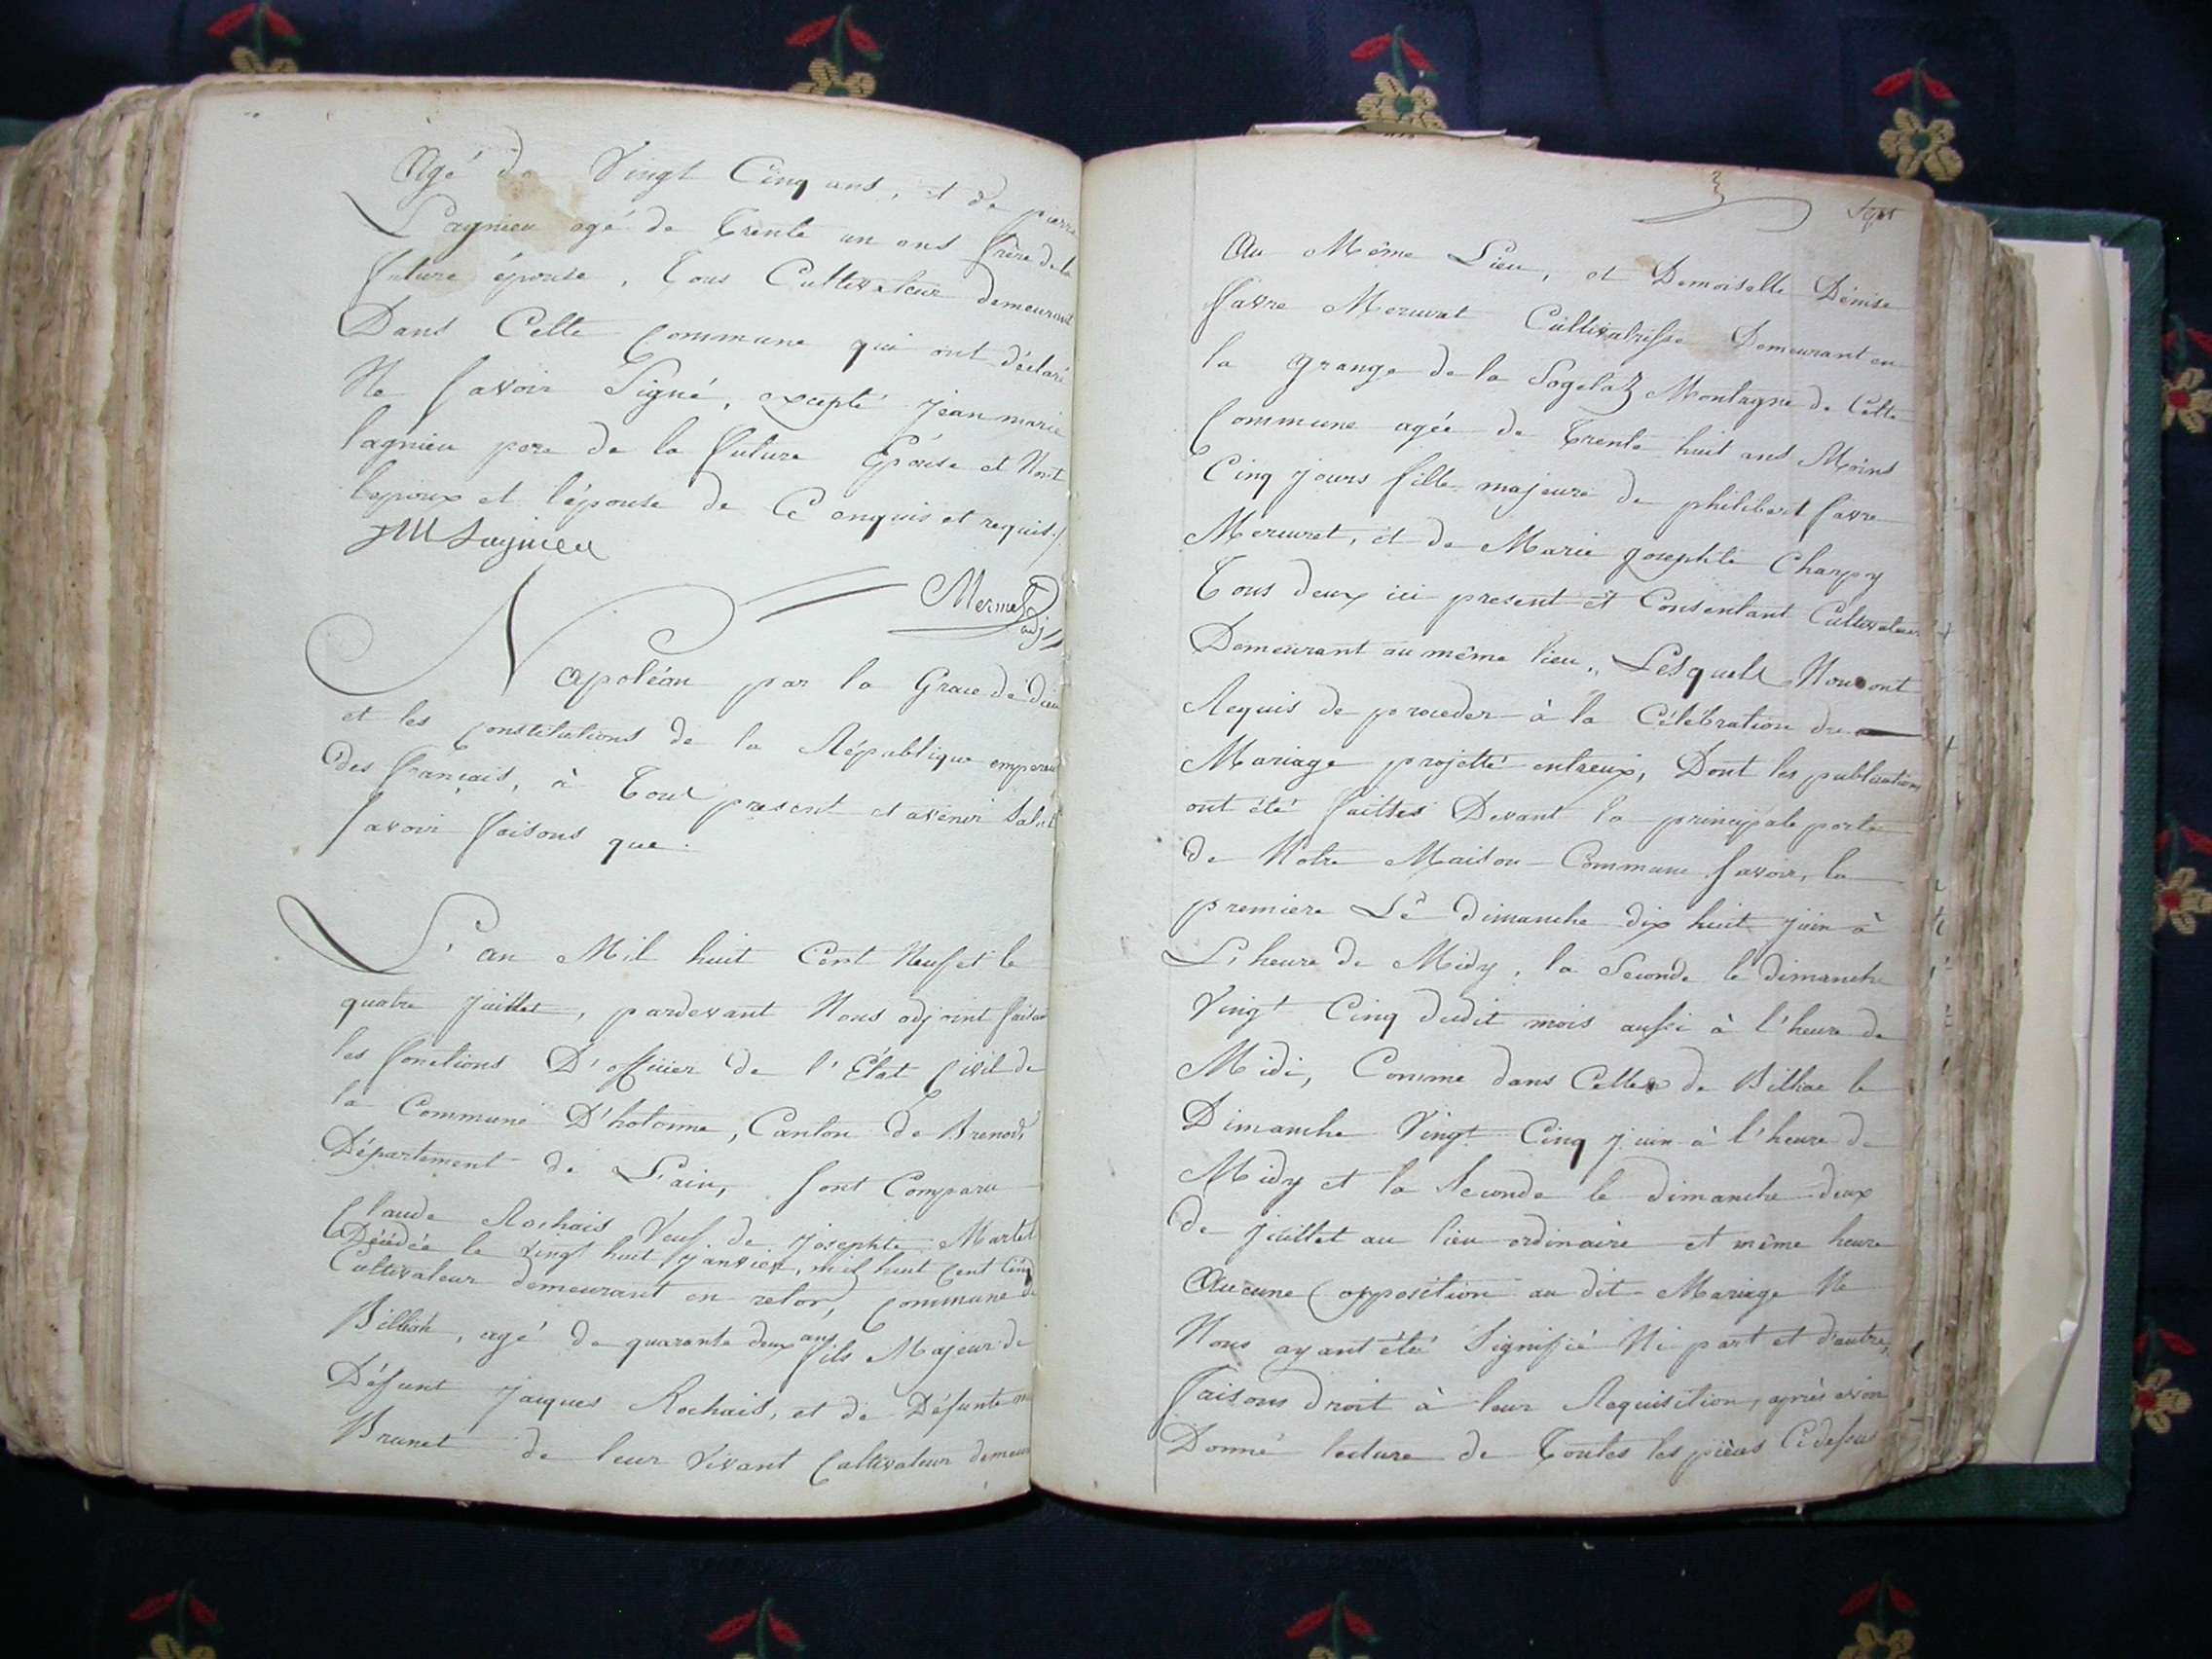 Agé de Vingt Cinq ans, et de pierre
Lagnieu agé de Trente un ans frère de la
future épouse, Tous Cultivateur demeurant
Dans Cette Commune qui ont déclaré
Ne Savoir Signé, excepté jean marie
lagnieu pere de la future Épouse et Nont
lepoux et l'épouse de Ce enquis et requis./.
JM Lagnieu
Mermet
adj
Napoléon par la Grace de dieu
et les Constitutions de la République empereur
des français, à Tous present et avenir Salut
Savoir faisons que.
L'an Mil huit Cent Neuf et le
quatre juillet, pardevant Nous adjoint faisant
les fonctions D'officier de l'État Civil de
la Commune D'hotonne, Canton de Brenod,
Département de L'ain, Sont Comparu
Claude Rochais Veuf de josephte Martel
Décédée le vingt huit janvier, mil huit Cent Cinq
Cultivateur demeurant en retor, Commune de
Billiat, agé de quarante deux ans fils Majeur de
Défunt jacques Rochais, et de Défunte
Brunet de leur vivant Cultivateur
Sept
Au Même Lieu, et Demoiselle Dénise
favre Meruret Cultivatrisse Demeurant en
la grange de la Sogelaz Montagne de Cette
Commune agée de Trente huit ans Moins
Cinq jours fille majeure de philibert favre
Meruret, et de Marie josephte Charpy
Tous deux ici present et Consentant Cultivateur
Demeurant au même lieu, Lesquels Nous ont
Requis de proceder à la Célébration du
Mariage projetté entreux, Dont les publications
ont été faittes Devant la principale porte
de Notre Maison Commune Savoir, la
premiere Le dimanche dix huit juin à
L'heure de Midy, la Seconde le dimanche
Vingt Cinq dudit mois aussi à l'heure de
Midi, Comme dans Celle de Billiat le
Dimanche Vingt Cinq juin à l'heure de
Midy et la Seconde le dimanche deux
de juillet au lieu ordinaire et même heure
Aucune opposition au dit Mariage Ne
Nous ayant été Signifié Ni part et d'autre,
faisons droit à leur Requisition, après avoir
Donné lecture de Toutes les pièces Cidessus